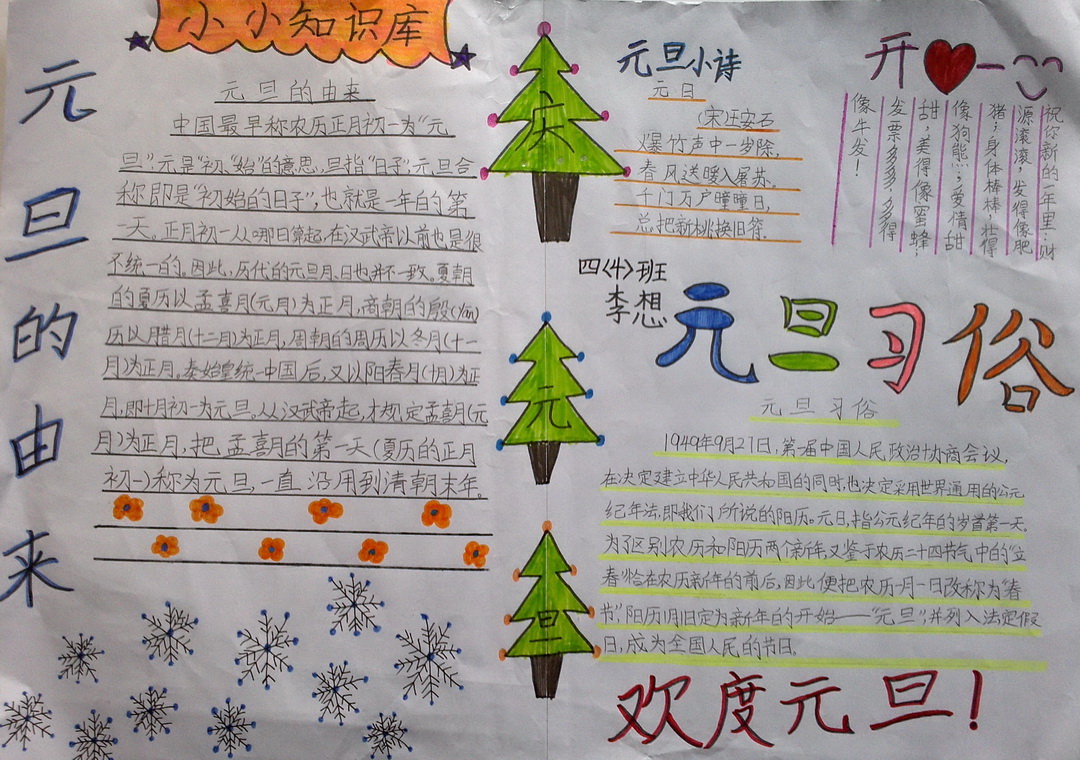 小小知识库
元旦的由来
元旦的由来
中国最早称农历正月初一为“元
旦”元是“初、“始”的意思,旦指“日子”,元旦合
称即是“初始的日子”,也就是一年的第
一天。正月初一从哪日算起,在汉武帝以前也是很
不统一的。因此,历代的元旦月、日也并不一致。夏朝
的夏历以孟喜月(元月)为正月,商朝的殷(yān)
历以腊月(十二月)为正月,周朝的周历以冬月(十一
月)为正月。秦始皇统一中国后,又以阳春月(十月)为正
月,即十月初一为元旦。从汉武帝起,才规定孟喜月(元
月)为正月,把孟喜月的第一天(夏历的正月
初一)称为元旦,一直沿用到清朝末年。
庆
元
旦
元旦小诗
元日
(宋)王安石
爆竹声中一岁除,
春风送暖入屠苏。
千门万户曈曈日,
总把新桃换旧符。
四〈4〉班
李想
开一
祝你新的一年里:财
源滚滚,发得像肥
猪;身体棒棒,壮得
像狗熊;爱情甜
甜,美得像蜜蜂;
发票多多,多得
像牛发!
元旦习俗
元旦习俗
1949年9月27日,第一届中国人民政治协商会议,
在决定建立中华人民共和国的同时,也决定采用世界通用的公元
纪年法,即我们所说的阳历。元日,指公元纪年的岁首第一天。
为了区别农历和阳历两个新年,又鉴于农历二十四节气中的“立
春”恰在农历新年的前后,因此便把农历一月一日改称为“春
节”阳历1月1日定为新年的开始——“元旦”,并列入法定假
日,成为全国人民的节日。
欢度元旦!